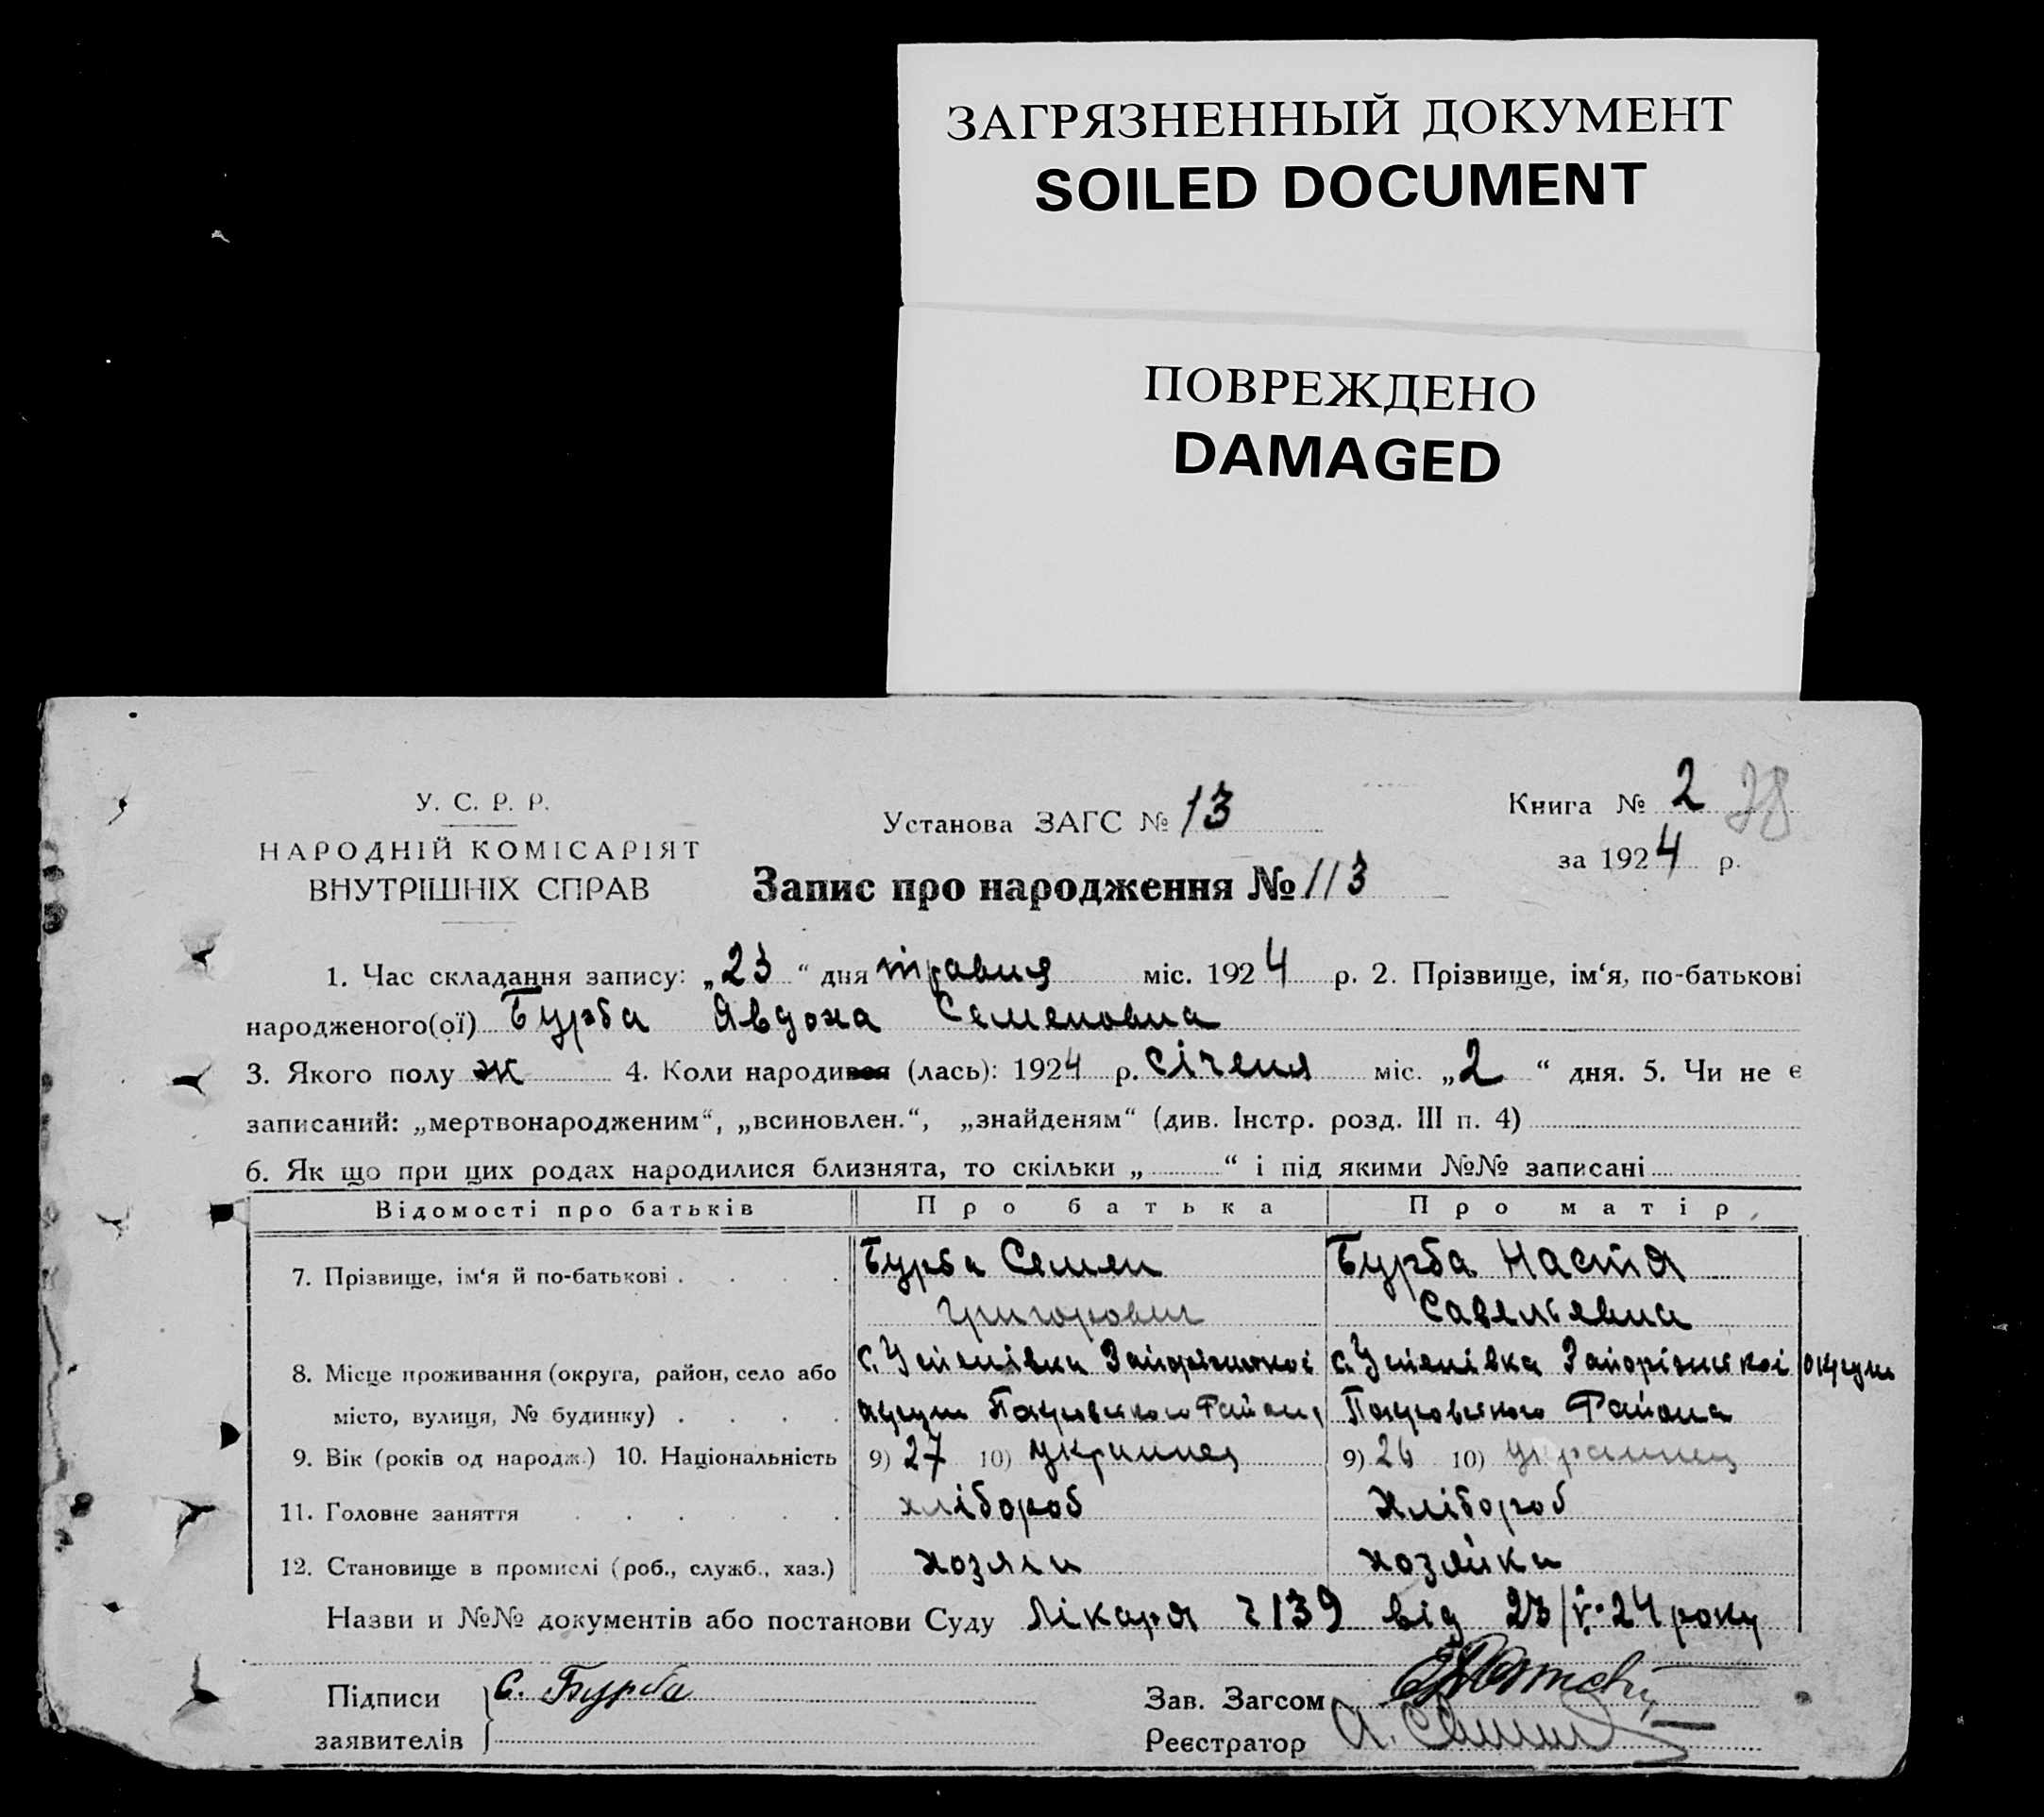 ЗАГРЯЗНЕННЫЙ ДОКУМЕНТ
SOILED DOCUMENT
ПОВРЕЖДЕНО
DAMAGED
У. С. Р. Р.
НАРОДНІЙ КОМІСАРІЯТ
ВНУТРІШНІХ СПРАВ
Установа ЗАГС № 13
Запис про народження № 113
Книга № 2 28
за 1924 р.
1. Час складання запису: „23“ дня травня міс. 1924 р. 2. Прізвище, ім‘я, по-батькові
народженого(ої) Бурба Явдоха Семеновна
3. Якого полу ж 4. Коли народився (лась): 1924 р. січеня міс. „2“ дня. 5. Чи не є
записаний: „мертвонародженим“, „всиновлен.“, „знайденям“ (див. Інстр. розд. III п. 4)
6. Як що при цих родах народилися близнята, то скільки „ “ і під якими №№ записані
Відомості про батьків Про батька Про матір
7. Прізвище, ім‘я й по-батькові . . . . Бурба Семен Бурба Настя
Григорович Савельевна
8. Місце проживання (округа, район, село або с. Успенівка Запорізької с. Успенівка Запорізької округи
місто, вулиця, № будинку) . . . . округи Покровського Району Покровського Района
9. Вік (років од народж.) 10. Національність 9) 27 10) украинец 9) 26 10) украинец
11. Головне заняття . . . . . . хлібороб Хлібороб
12. Становище в промислі (роб., служб., хаз.) хозяин хозяйка
Назви и №№ документів або постанови Суду Лікаря ч 139 від 23/V-24 року
Підписи С. Бурба Зав. Загсом
заявителів Реєстратор